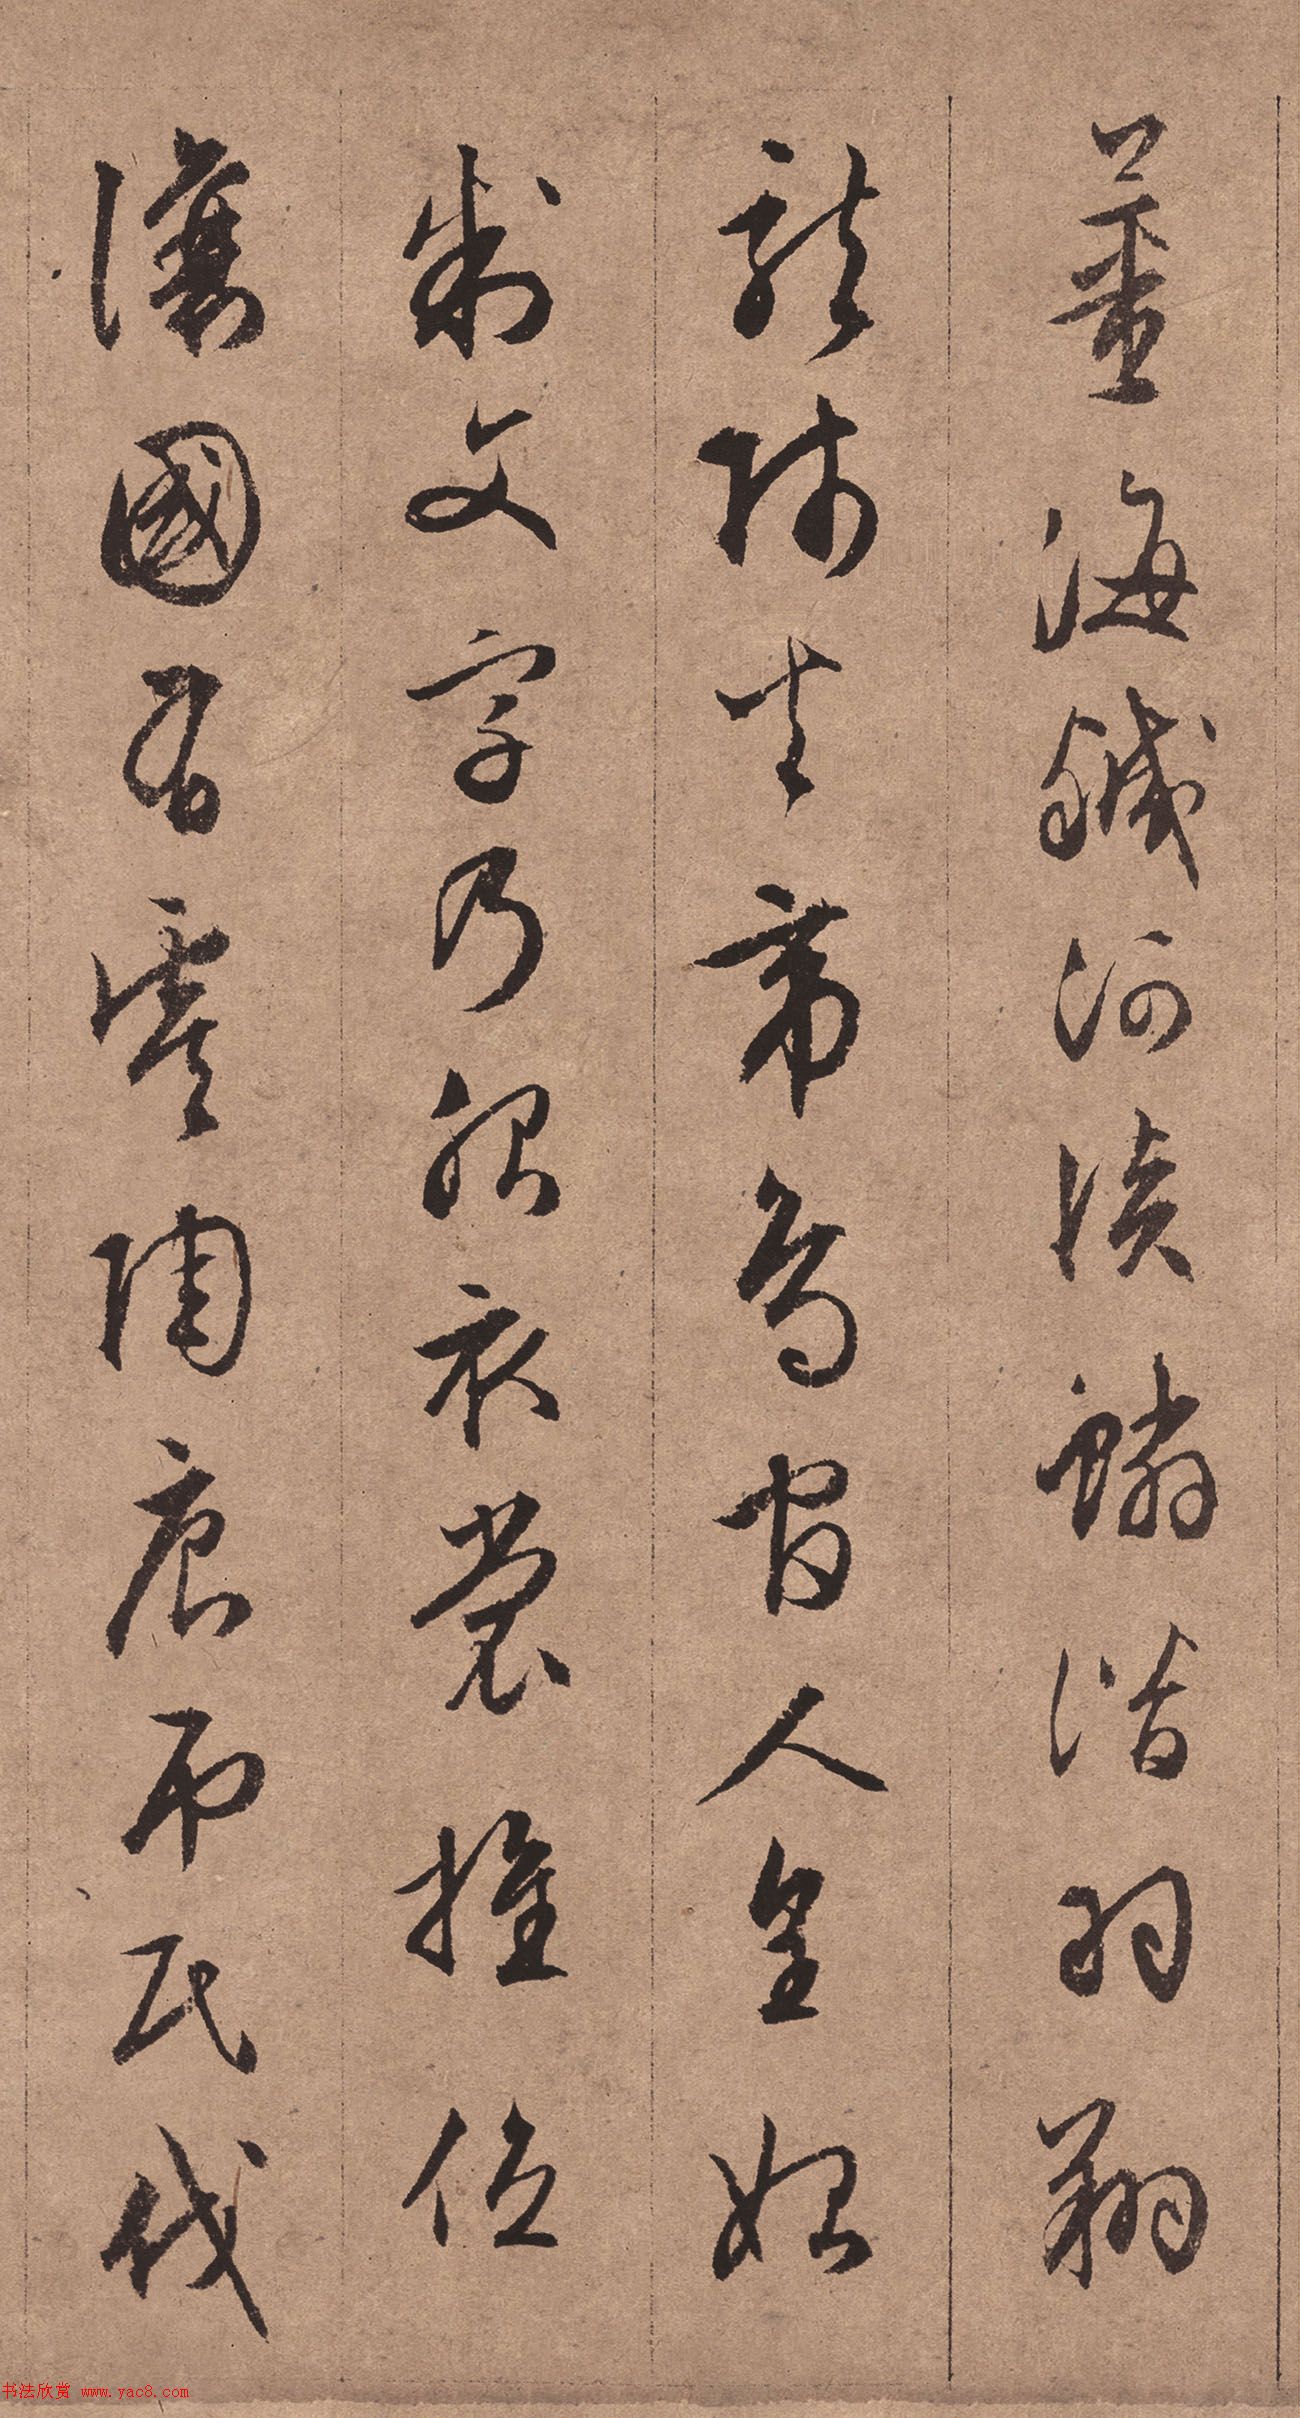 薑海鹹河淡鱗潛羽翔
龍師火帝鳥官人皇始
制文字乃服衣裳推位
讓國有虞陶唐弔民伐
书法欣赏 www.yac8.com